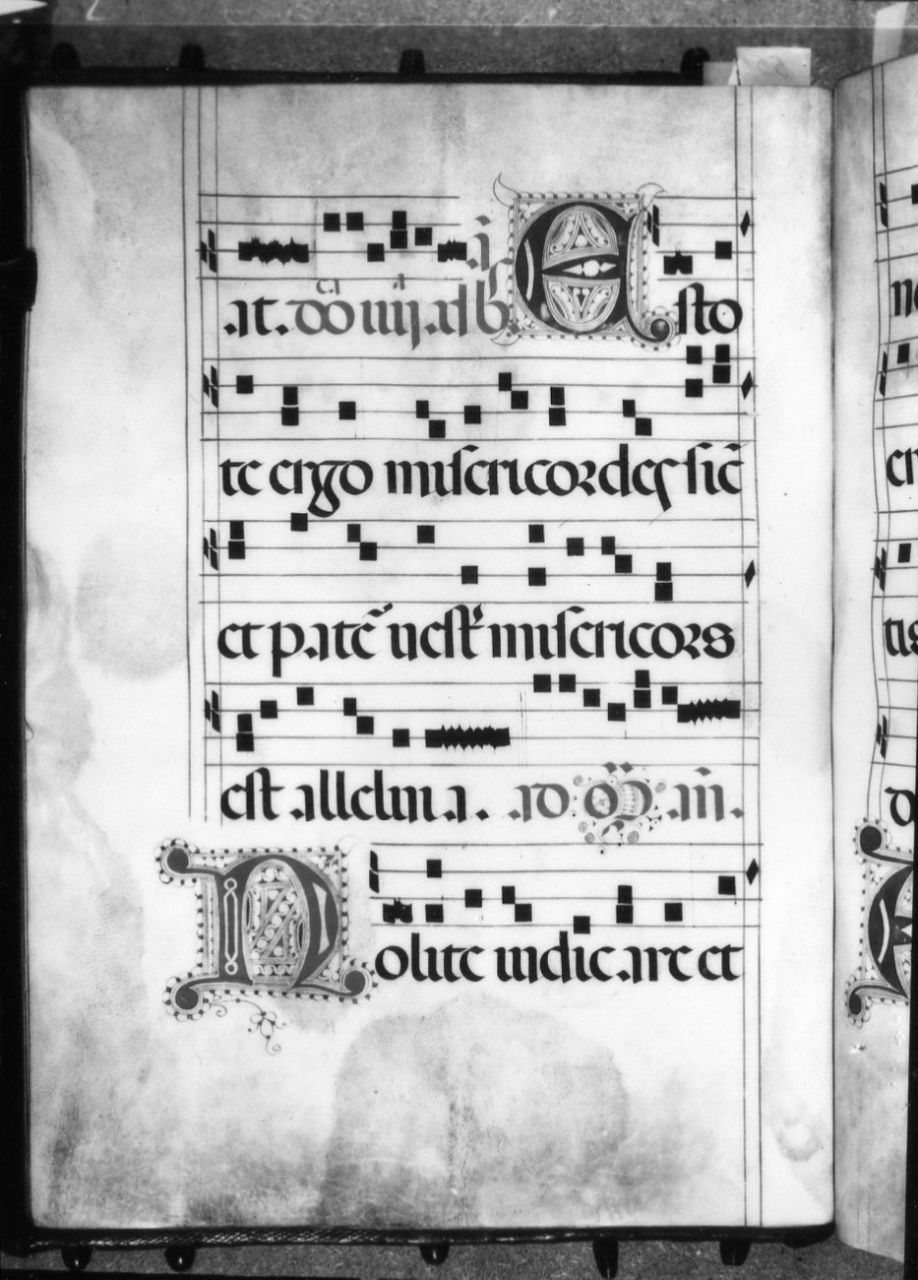 at. dō iiij. a l'b. ā Esto
te ergo misericordes sic̄
et patē uest' misericors
est alleluia. ad oō añ.
Nolite iudicare et